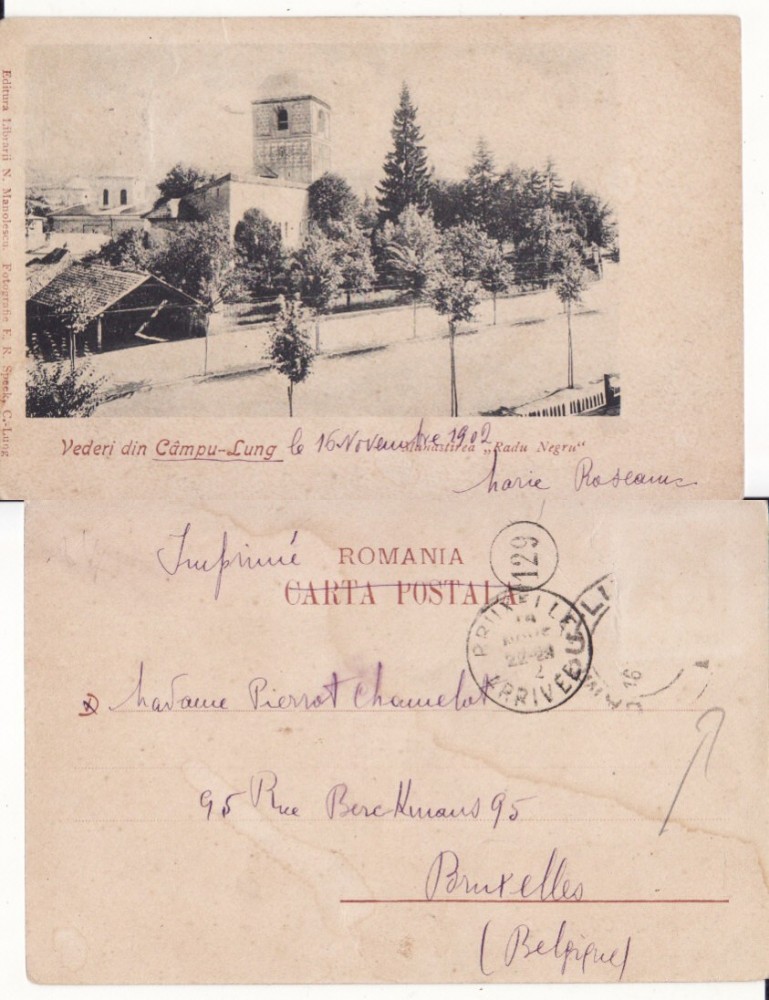 Editura Librarii N. Manolescu. Fotografie F. R. Speek, C.-Lung
Vederi din Câmpu-Lung le 16 Novembre 1902 Manastirea „Radu Negru“
Marie
Imprimé ROMANIA
CARTA POSTALA
129
BRUXELLES
22-23
ARRIVEE
16
Madame Pierrot Chamelot
95 Rue Berckmans 95
Bruxelles
(Belgique)